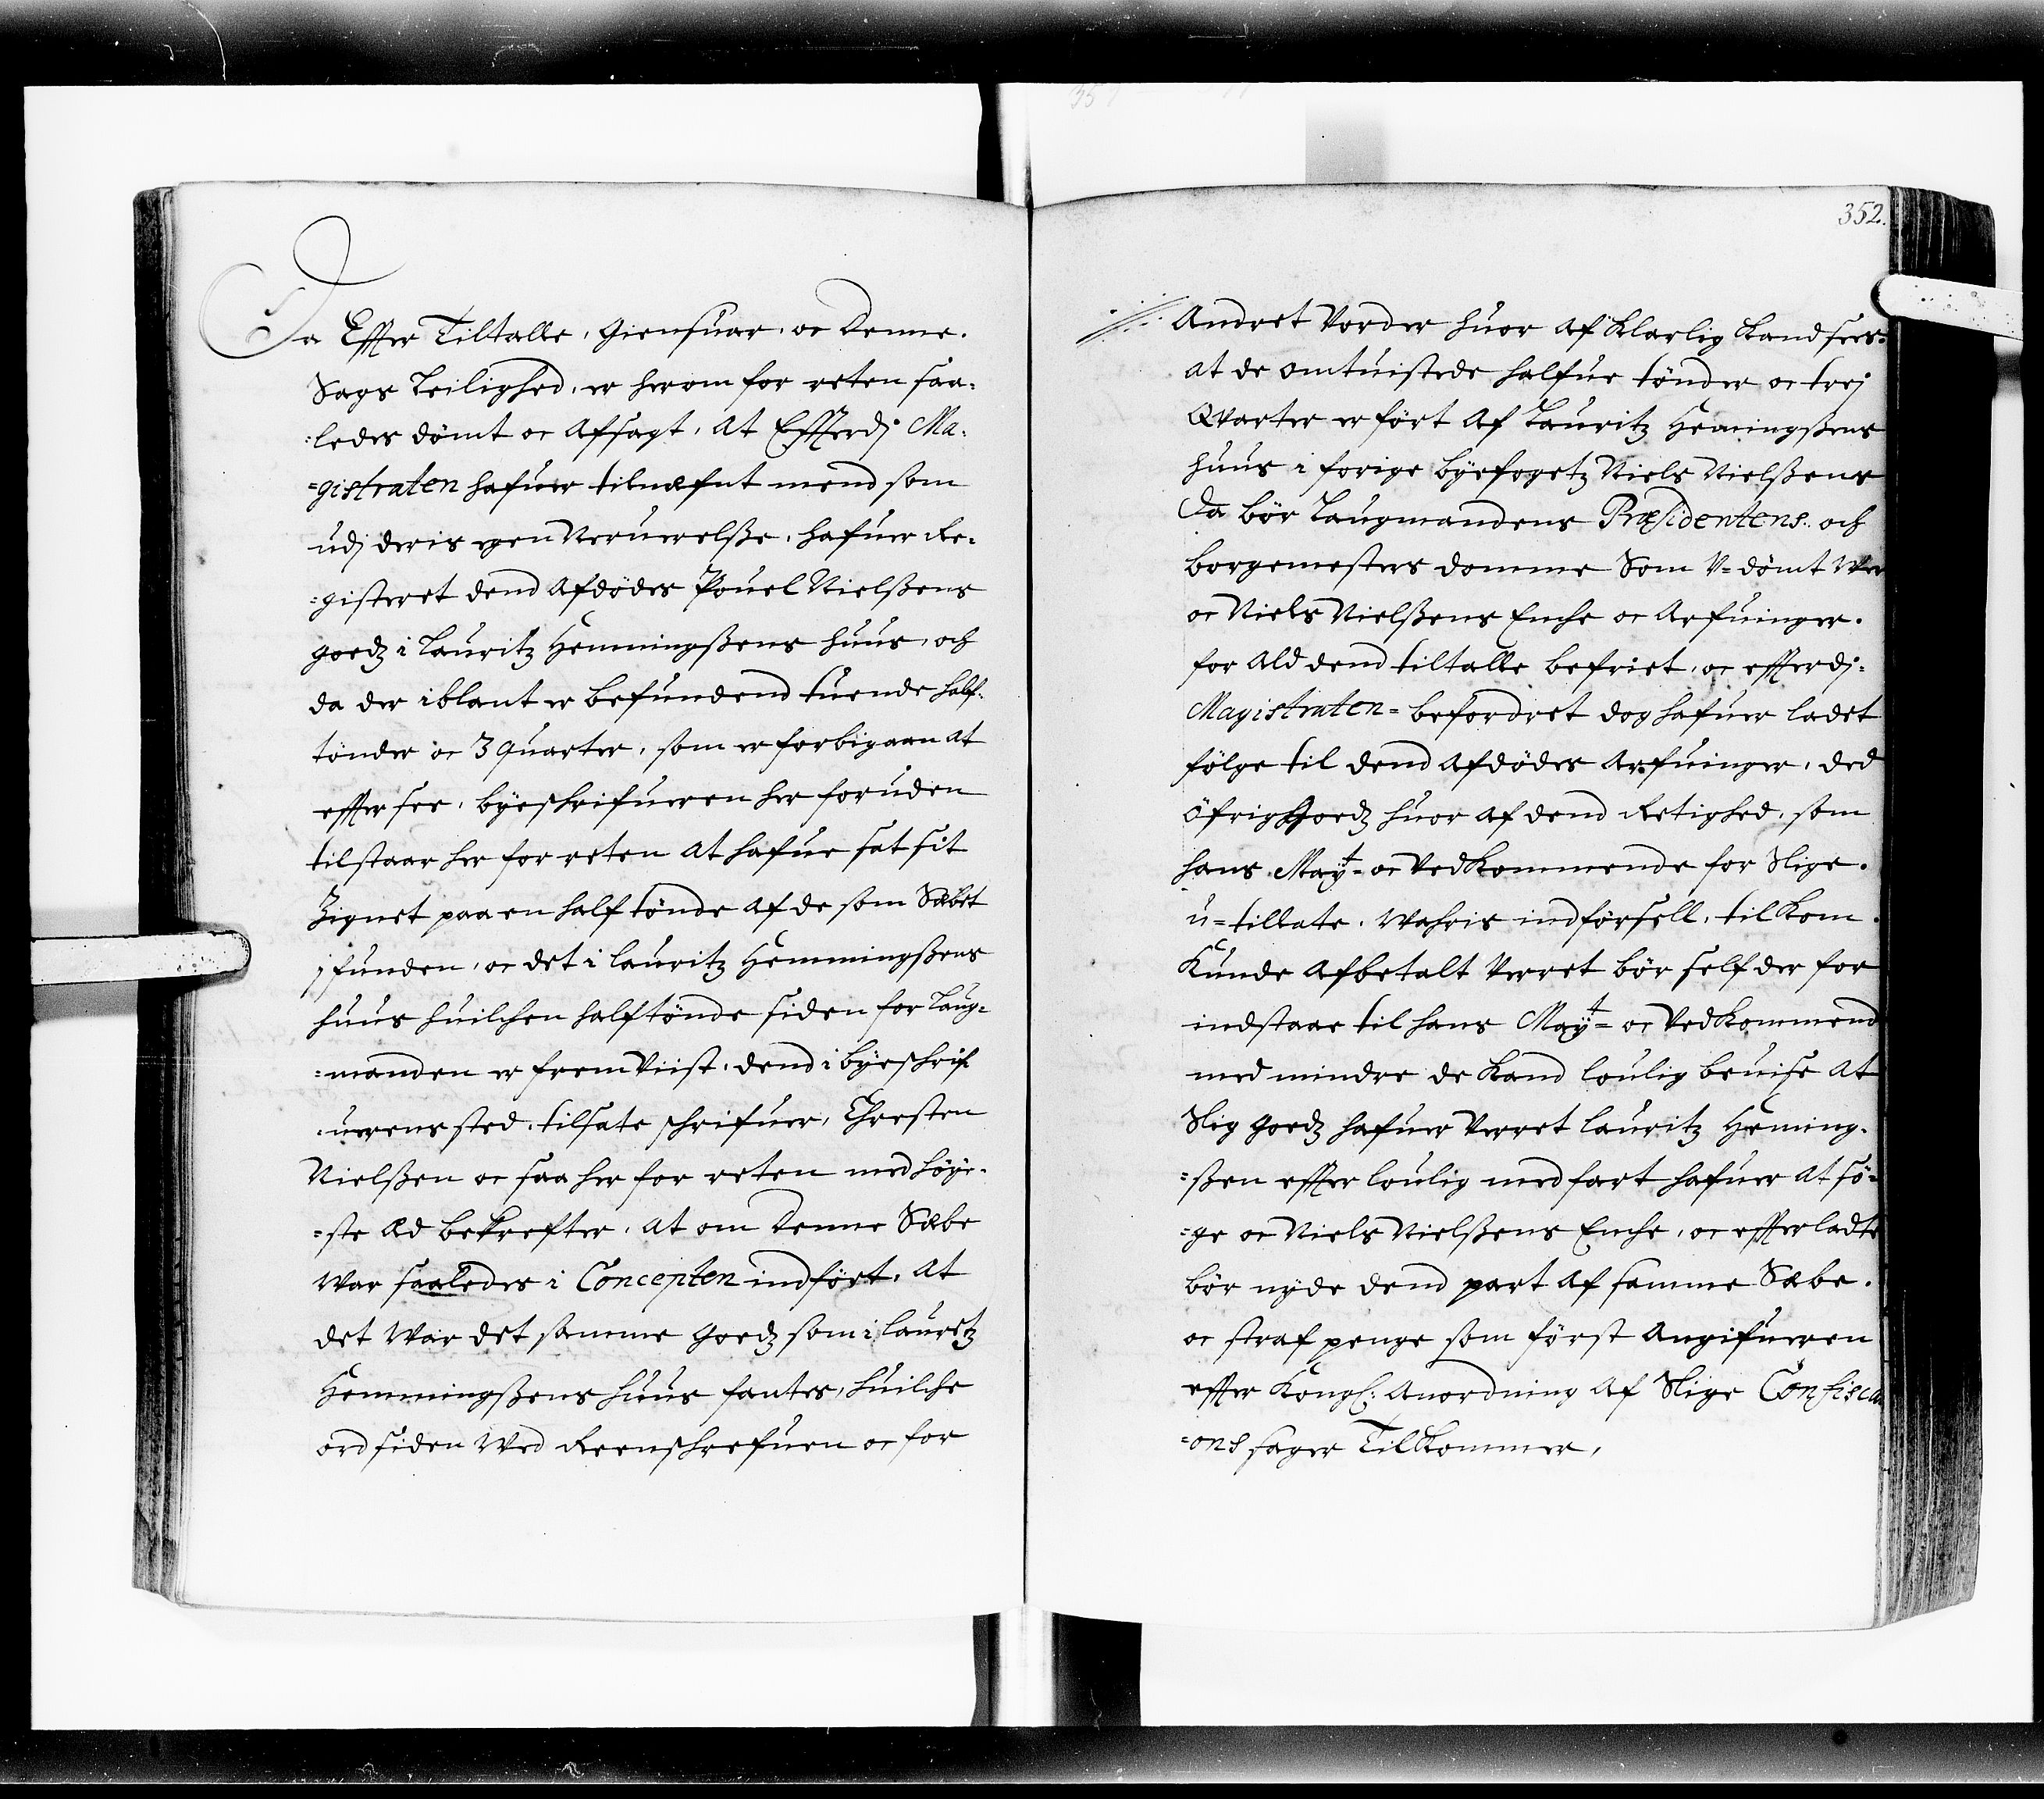 Da Effter Tiltalle, giensuar, oc denne.
Sags Leilighed, er herom for reten saa-
-ledes dömt oc Afsagt, At Effterdj Ma-
=gistraten hafuer tilnæfnt mend som
udj deris egen Neruerelße, hafuer Re-
=gisteret dend Afdödes Pouel Nielßens
goedz i Lauritz Hemmingßens huus, och
da der iblant er befundend tuende half-
tönder oc 3 quarter, som er forbigaan at
effter see, byeschrifueren her foruden
tilstaar her for reten at hafue sat sit
Zignet paa en half tönde af de som Sæbet
ifunden, oc det i Lauritz Hemmingßens
huus huilchen halftönde siden for Laug-
=manden er frem Viist, dend i byeschrif
-uerens sted, tilsate schrifuer, Chresten
Nielßen oc saa her for reten med höye-
=ste Æd bekrefter, at om denne Sæbe
War saaledes i Concepten indfört, at
det War det samme goedz som i Lauretz
Hemmingßens huus fantes, huilche
ord siden Ved Reenschrefuen oc for
352.
Andret Vorder huor af klarlig kand sees-
at de omtuistede halfue tönder oc trej
Qvarter er fört af Lauritz Hemingßens
huus i forige byefogetz Niels Nielßens
Da bör Laugmandens Præsidentens och
borgemesters domme Som V=dömt Wer
oc Niels Nielßens Enche oc Arfuinger.
for ald dend tiltalle befriet, oc effterdj-
Magistraten= befordret dog hafuer ladet
fölge til dend afdödes Arfuinger, ded
öfrig Goedz huor af dend Retighed, som
hans Mayt= oc Vedkommende for Slige.
u=tillate. Wahris indförsell, tilkom.
Kunde Afbetalt Verret bör self der for
indstaae til hans Mayt= oc Vedkommend
med mindre de kand loulig beuise at
Slig goedz hafuer Verret Lauritz Heming-
=ßen effter loulig medfart hafuer at sö-
=ge oc Niels Nielßens Enche, oc effterladte
bör nyde dend part af samme Sæbe.
oc straf penge som först Angifueren
effter Kongl: Anordning af Slige Confisca
=ons sager Tilkommer,